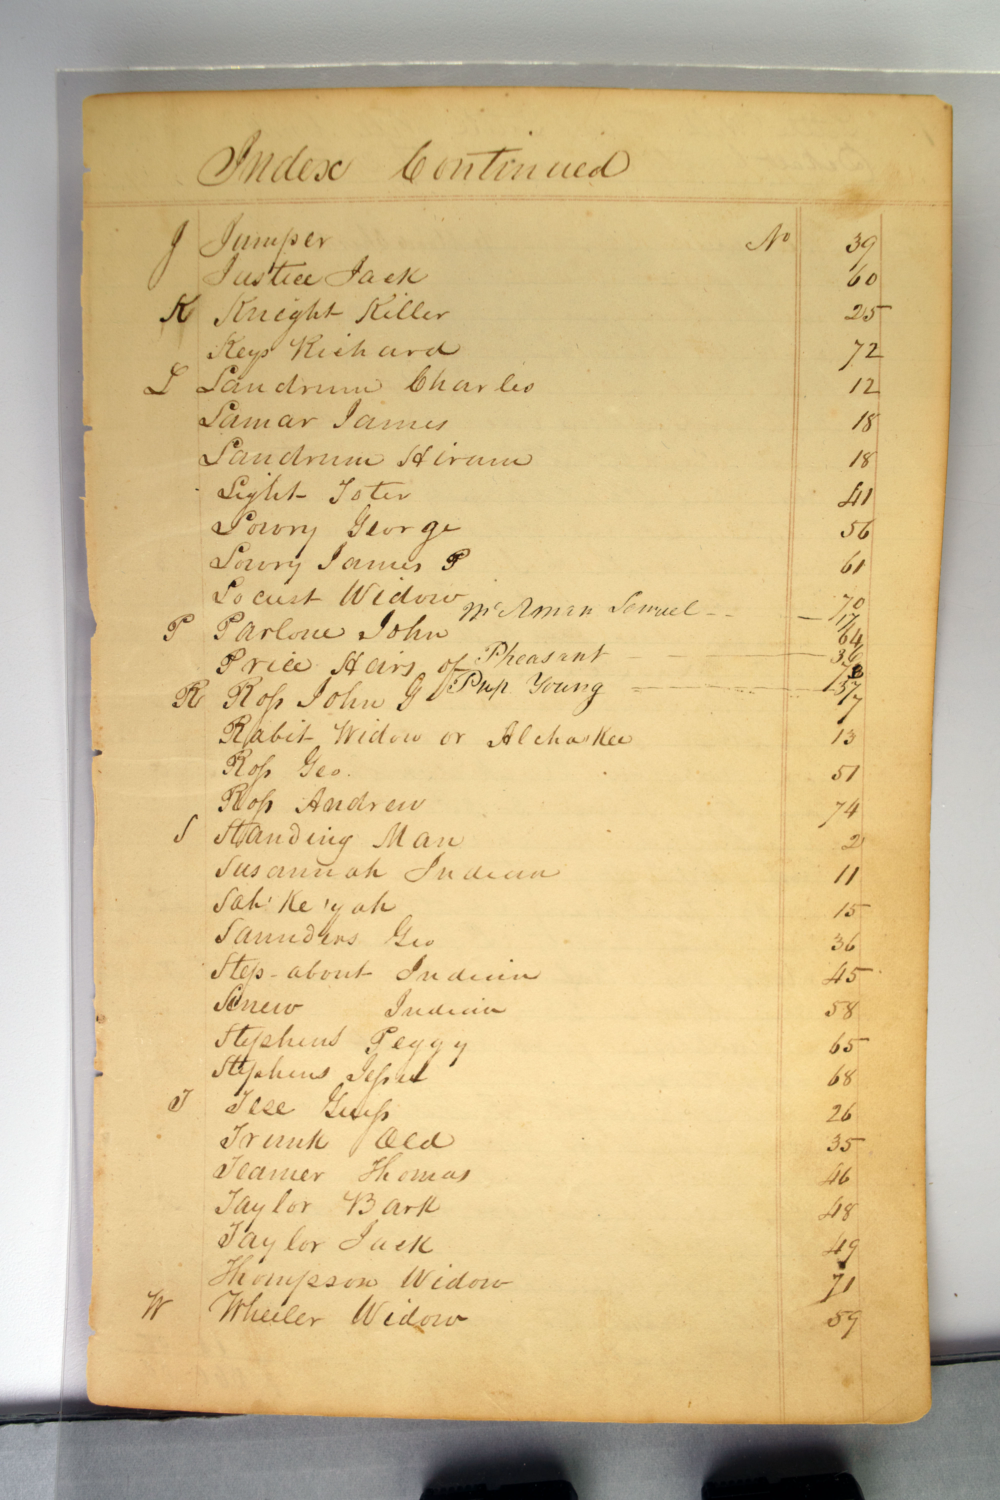 Index Continued
J Jumper No 39
Justice Jack 60
K Knight Killer 25
Keys Richard 72
L Landrum Charles 12
Lamar James 18
Landrum Hiram 18
Light Toter 41
Lowry George 56
Lowry James P 61
Locust Widow 70
McAman Lemuel 17
P Parlone John 64
Pheasant 36
Price Heirs of
Pup Young
R Ross John G 7
Rabit Widow or Alchaskee 13
Ross Geo. 51
Ross Andrew 74
S Standing Man 2
Susannah Indian 11
Sah' Ke 'yah 15
Saunders Geo 36
Step-about Indian 45
Indian 58
Stephens Peggy 65
Stephens 68
T Tese Guess 26
Trunk Old 35
Teamer Thomas 46
Taylor Bark 48
Taylor Jack 49
Thompson Widow 71
W Wheeler Widow 59